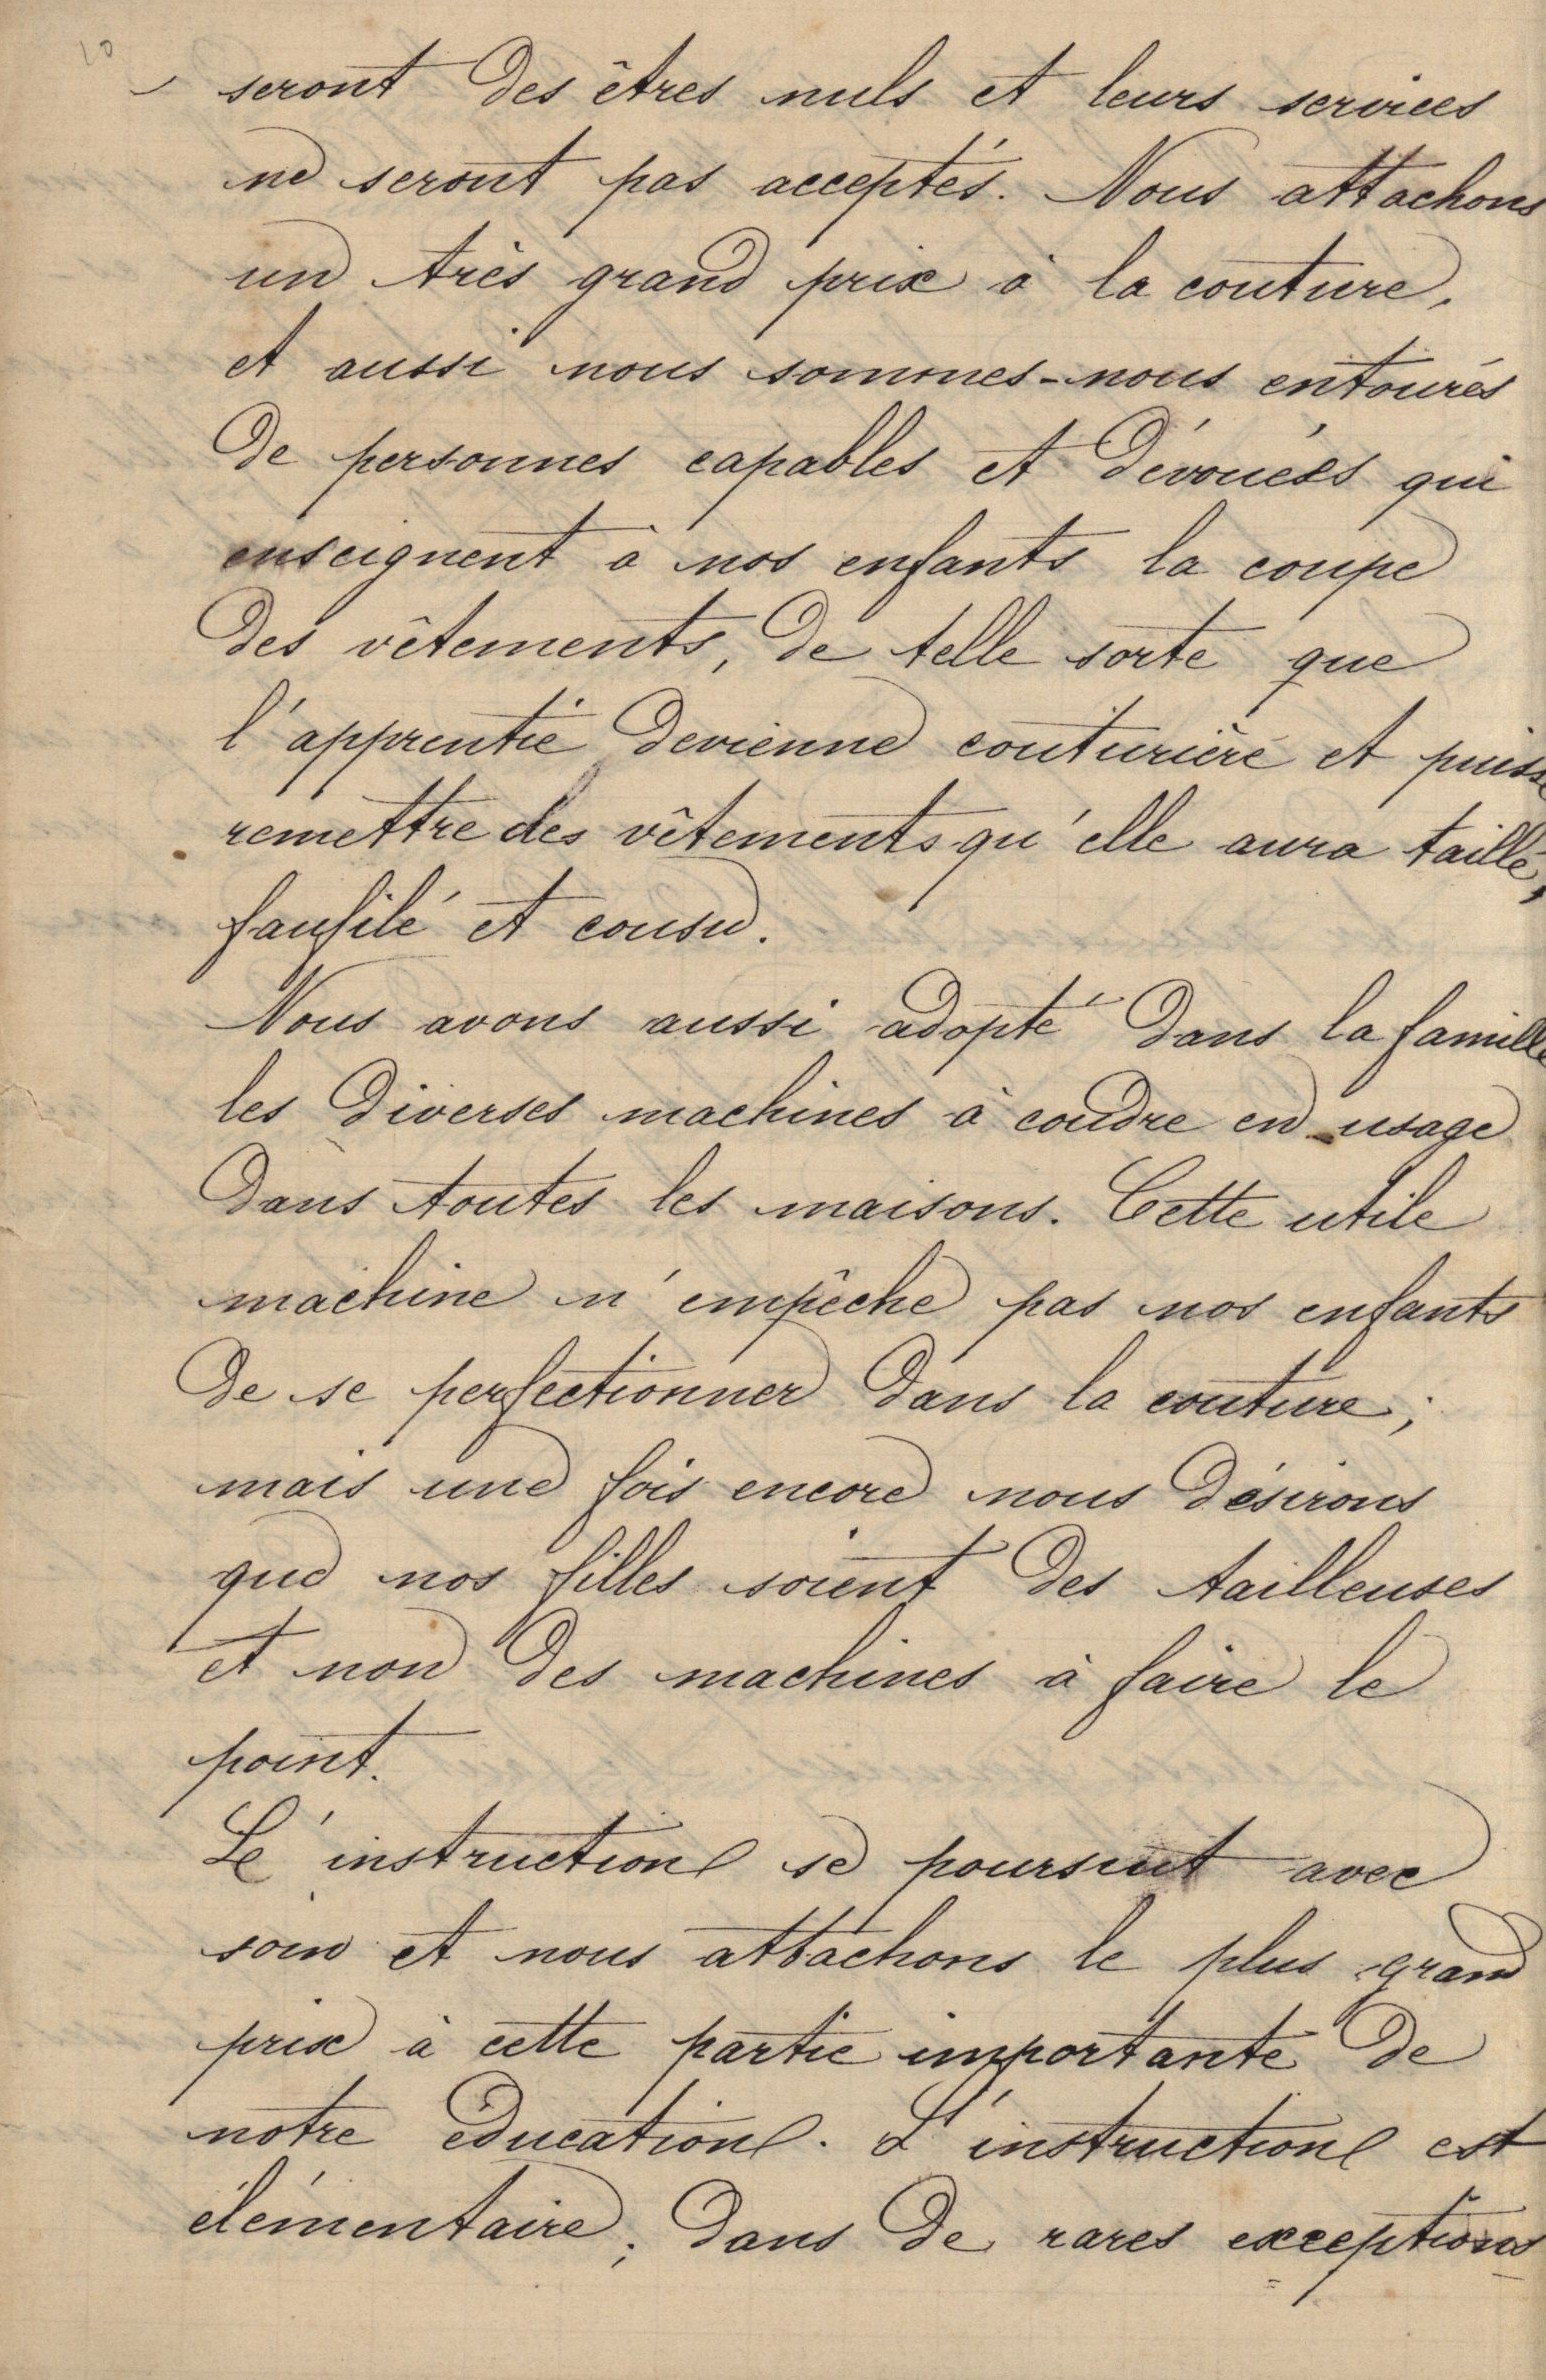 10
seront des êtres nuls et leurs services
ne seront pas acceptés. Nous attachons
un très grand prix à la couture,
et aussi nous sommes-nous entourés
de personnes capables et dévouées qui
enseignent à nos enfants la coupe
des vêtements, de telle sorte que
l'apprentie devienne couturière et puisse
remettre des vêtements qu'elle aura taillé,
faufilé et cousu.
Nous avons aussi adopté dans la famille
les diverses machines à coudre en usage
dans toutes les maisons. Cette utile
machine n'empêche pas nos enfants
de se perfectionner dans la couture;
mais une fois encore nous désirons
que nos filles soient des tailleuses
et non des machines à faire le
point.
L'instruction se poursuit avec
soin et nous attachons le plus grand
prix à cette partie importante de
notre éducation. L'instruction est
élémentaire; dans de rares exceptions